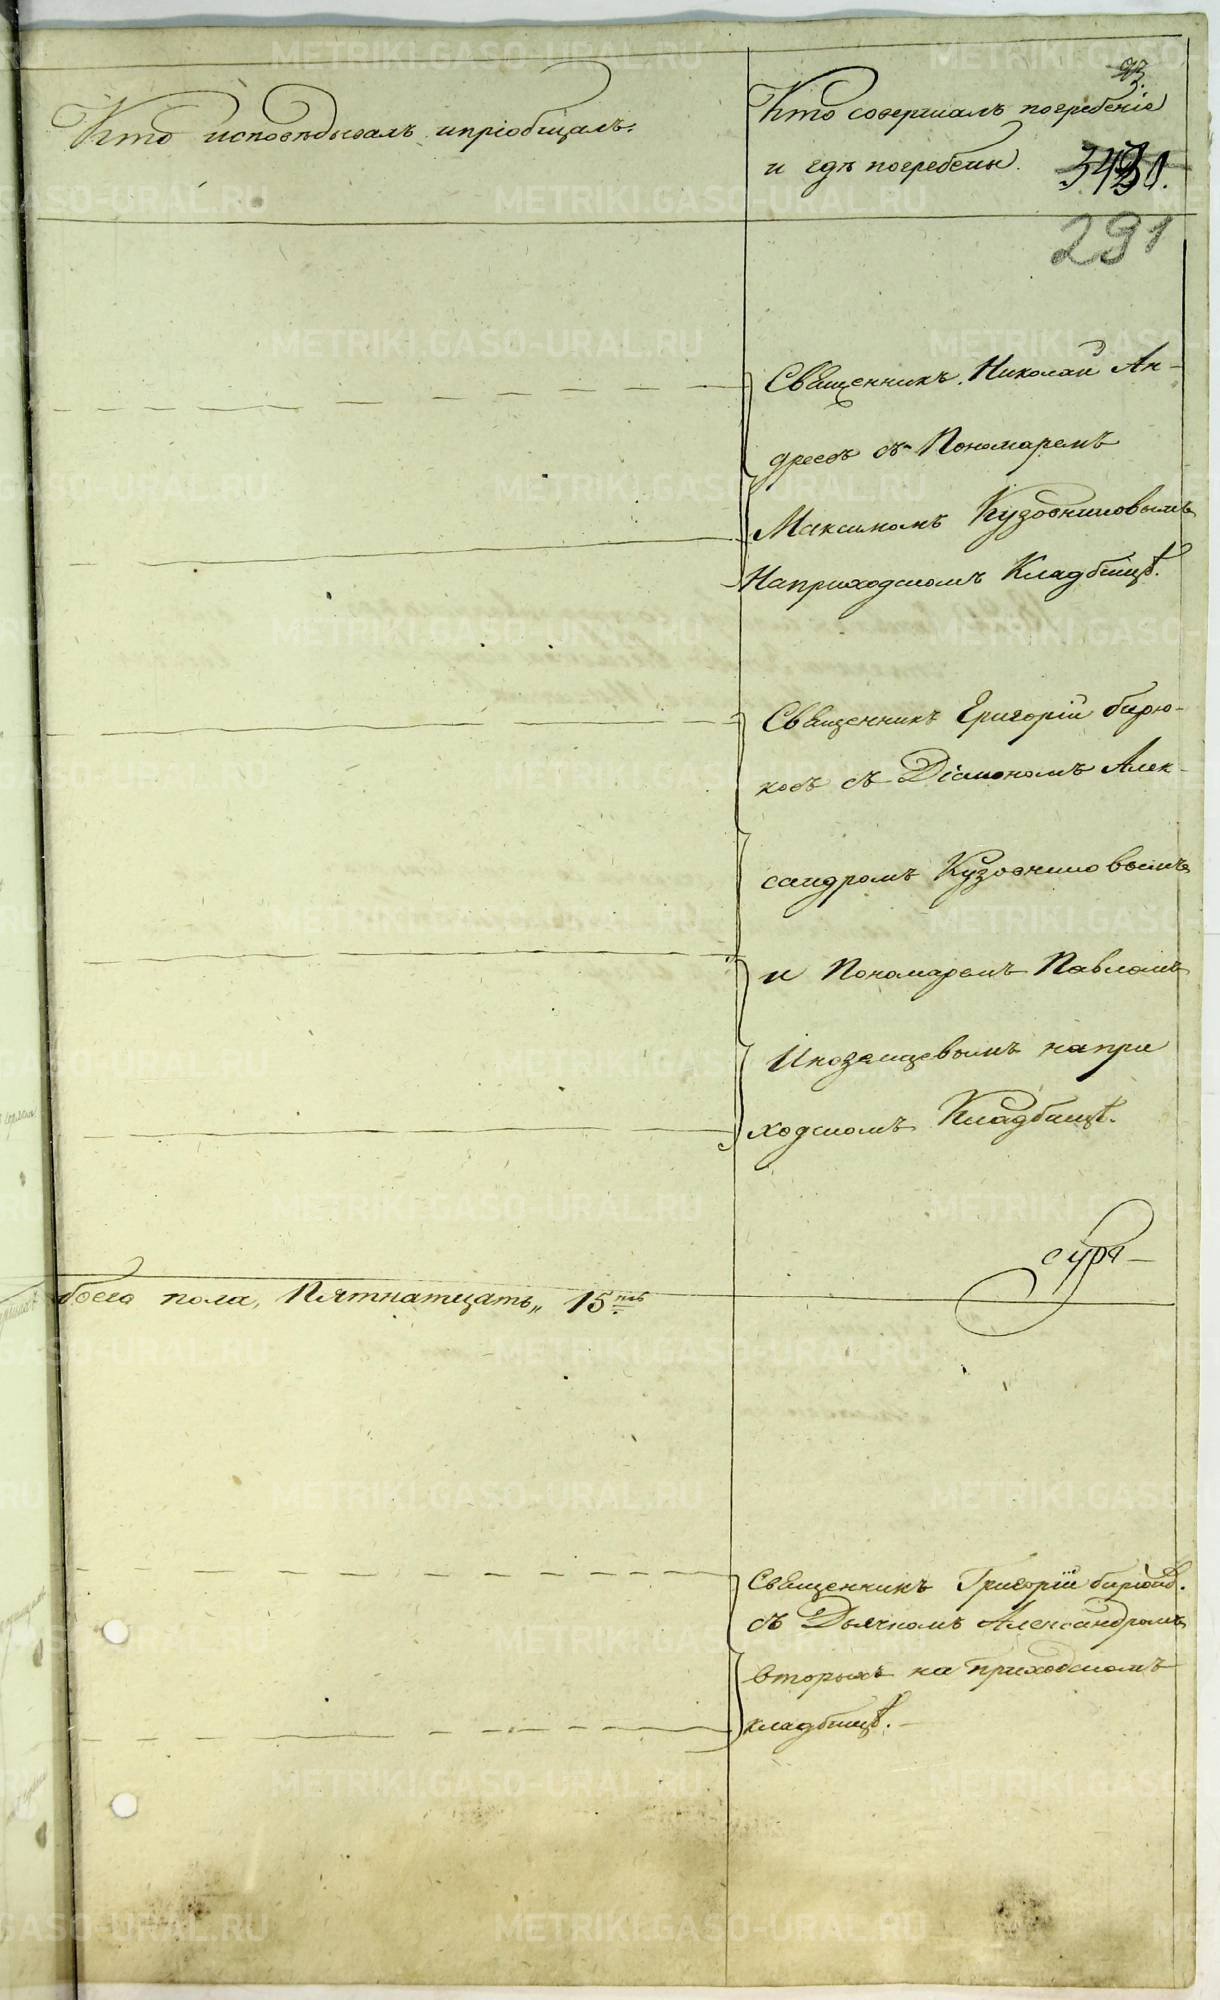 Кто исповѣдывалъ и пріобщалъ.
Кто совершалъ погребеніе
и гдѣ погребены.
93.
291
Священникъ Николай Ан-
дреевъ съ Пономаремъ
Максимомъ Кузовниковымъ
На приходскомъ Кладбищѣ.
Священникъ Григорій Бирю-
ковъ съ Діакономъ Алек-
сандромъ Кузовниковымъ
и Пономаремъ Павломъ
Иноземцевымъ на при
ходскомъ Кладбищѣ.
боего пола, Пятнатцать„ 15ть
Священникъ Григорій Бирюков.
съ Дьячкомъ Александромъ
Вторыхъ на приходскомъ
кладбищѣ.
METRIKI.GASO-URAL.RU